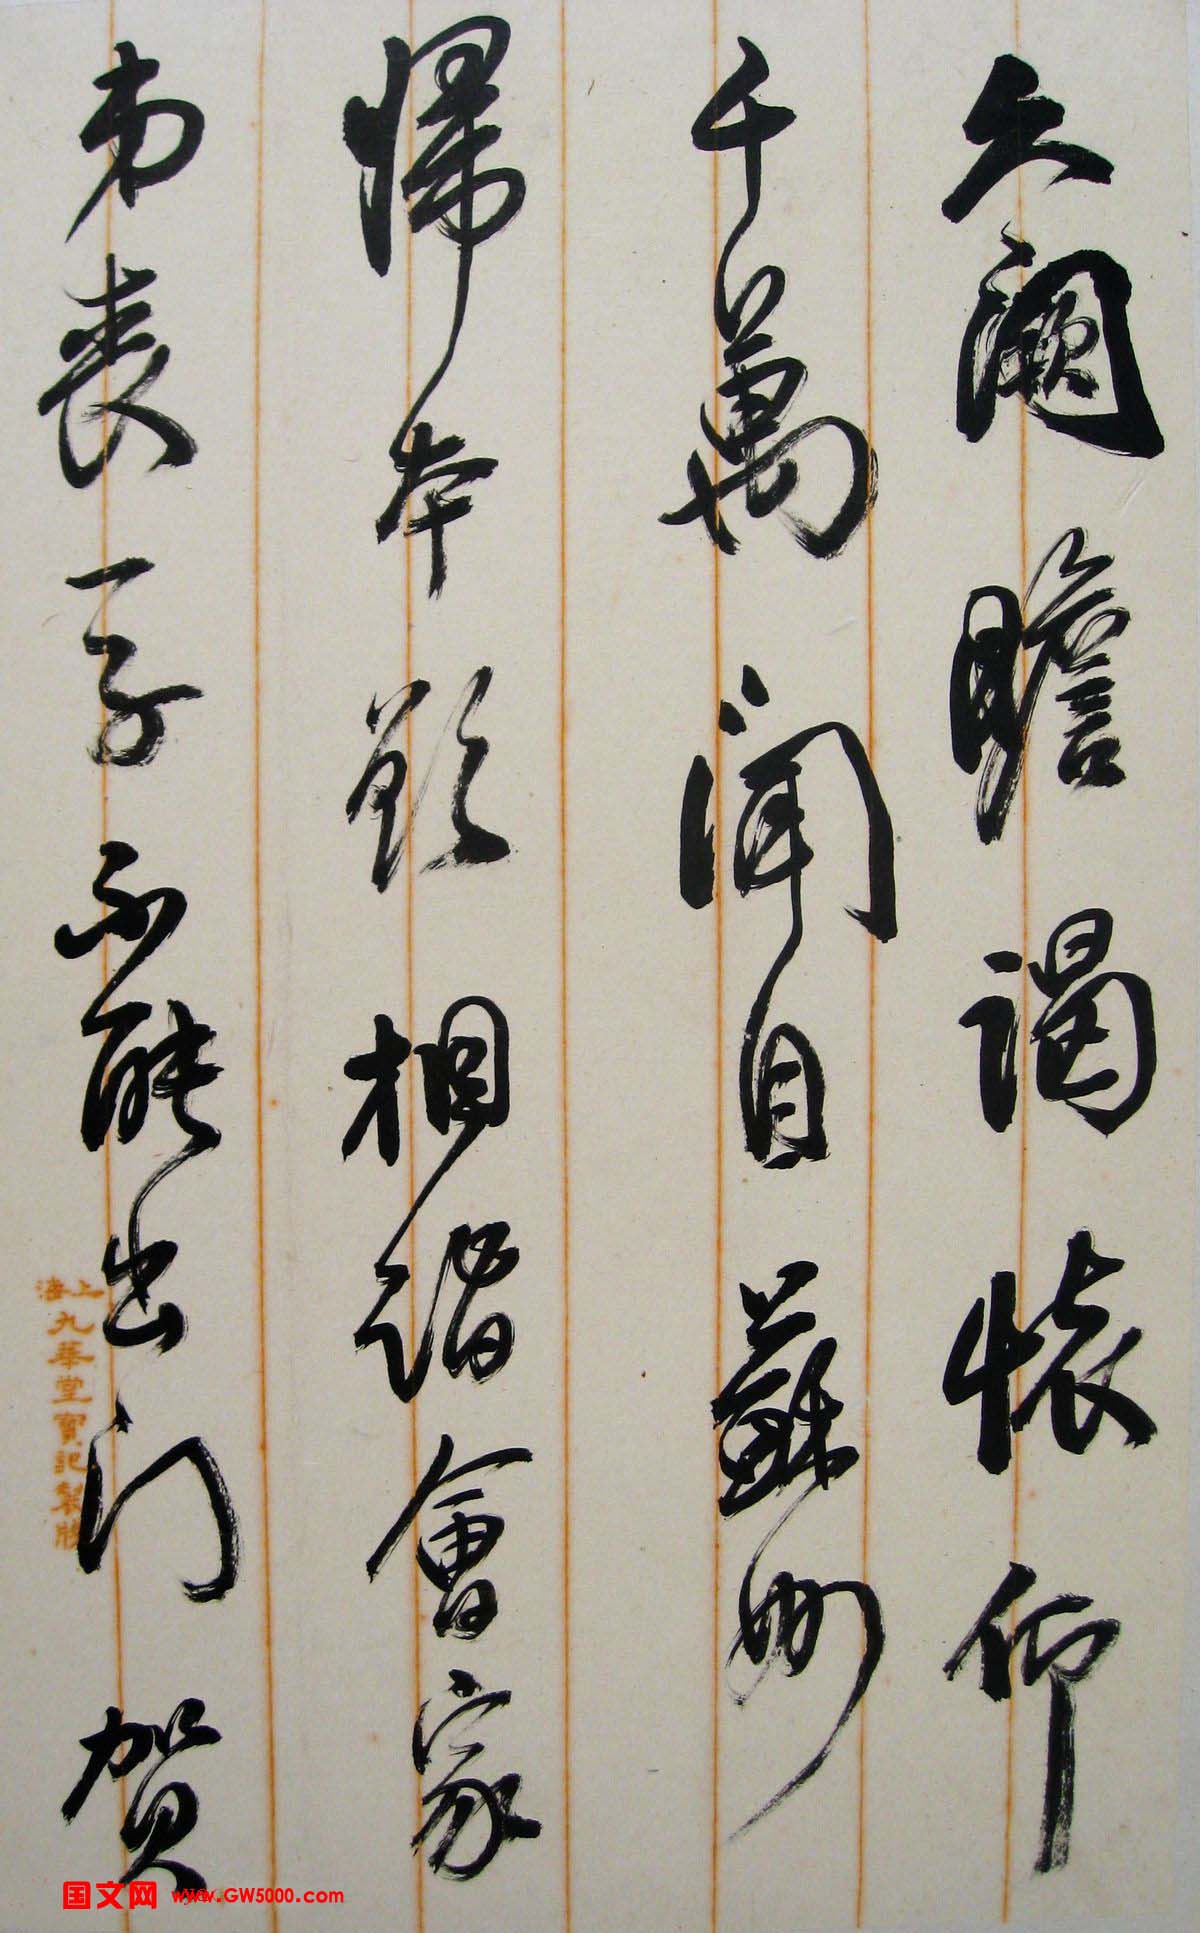 久阙瞻谒懷仰
千萬聞自蘇州
歸本欲相詣會家
弟喪一子不能出门賀
上海九華堂寶記製牋
国文网 www.GW5000.com